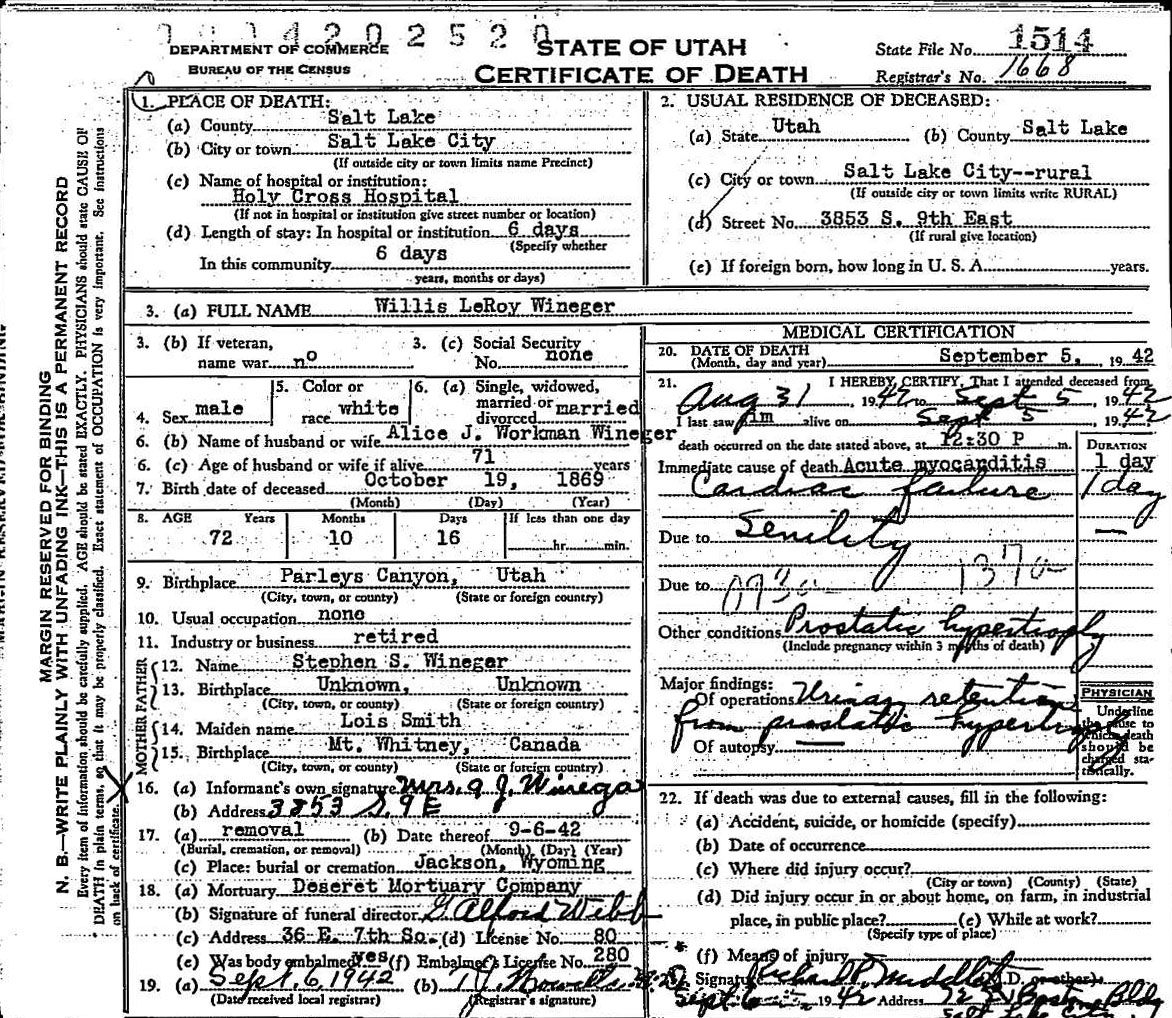 4 2 0 2 5 2 0
DEPARTMENT OF COMMERCE
BUREAU OF THE CENSUS
STATE OF UTAH
CERTIFICATE OF DEATH
State File No. 1514
Registrar's No. 1668
MARGIN RESERVED FOR BINDING
N. B.—WRITE PLAINLY WITH UNFADING INK—THIS IS A PERMANENT RECORD
Every item of information should be carefully supplied. AGE should be stated EXACTLY. PHYSICIANS should state CAUSE OF
DEATH in plain terms, so that it may be properly classified. Exact statement of OCCUPATION is very important. See instructions
on back of certificate.
1. PLACE OF DEATH:
(a) County Salt Lake
(b) City or town Salt Lake City
(If outside city or town limits name Precinct)
(c) Name of hospital or institution:
Holy Cross Hospital
(If not in hospital or institution give street number or location)
(d) Length of stay: In hospital or institution 6 days
(Specify whether
In this community 6 days
years, months or days)
2. USUAL RESIDENCE OF DECEASED:
(a) State Utah (b) County Salt Lake
(c) City or town Salt Lake City--rural
(If outside city or town limits write RURAL)
(d) Street No. 3853 S. 9th East
(If rural give location)
(e) If foreign born, how long in U. S. A. years.
3. (a) FULL NAME Willis LeRoy Wineger
3. (b) If veteran, 3. (c) Social Security
name war no No. none
5. Color or 6. (a) Single, widowed,
married or
4. Sex male race white divorced married
6. (b) Name of husband or wife Alice J. Workman Wineger
6. (c) Age of husband or wife if alive 71 years
7. Birth date of deceased October 19, 1869
(Month) (Day) (Year)
8. AGE Years Months Days If less than one day
72 10 16 hr. min.
9. Birthplace Parleys Canyon, Utah
(City, town, or county) (State or foreign country)
10. Usual occupation none
11. Industry or business retired
FATHER
12. Name Stephen S. Wineger
13. Birthplace Unknown, Unknown
(City, town, or county) (State or foreign country)
MOTHER
14. Maiden name Lois Smith
15. Birthplace Mt. Whitney, Canada
(City, town, or county) (State or foreign country)
16. (a) Informant's own signature Mrs. a J. Winega
(b) Address 3853 S. 9 E
17. (a) removal (b) Date thereof 9-6-42
(Burial, cremation, or removal) (Month) (Day) (Year)
(c) Place: burial or cremation Jackson, Wyoming
18. (a) Mortuary Deseret Mortuary Company
(b) Signature of funeral director G Alford Webb
(c) Address 36 E. 7th So. (d) License No. 80
(e) Was body embalmed? yes (f) Embalmer's License No. 280
19. (a) Sept. 6, 1942 (b)
(Date received local registrar) (Registrar's signature)
MEDICAL CERTIFICATION
20. DATE OF DEATH
(Month, day and year) September 5, 1942
21. I HEREBY CERTIFY, That I attended deceased from
Aug 31 1942 to Sept 5, 1942
I last saw him alive on Sept 5 1942
death occurred on the date stated above, at 12:30 P m. DURATION
Immediate cause of death Acute myocarditis 1 day
Cardiac failure 1 day
Due to Senility —
Due to
Other conditions Prostatic hypertrophy
(Include pregnancy within 3 months of death)
Major findings:
Of operations Urinary retention
from prostatic hypertrophy
Of autopsy —
PHYSICIAN
Underline
the cause to
which death
should be
charged sta-
tistically.
22. If death was due to external causes, fill in the following:
(a) Accident, suicide, or homicide (specify)
(b) Date of occurrence
(c) Where did injury occur?
(City or town) (County) (State)
(d) Did injury occur in or about home, on farm, in industrial
place, in public place? (e) While at work?
(Specify type of place)
(f) Means of injury
Signature Richard P. Middleton (M.D. or other)
Sept 6 1942 Address Boston Bldg
Salt Lake City